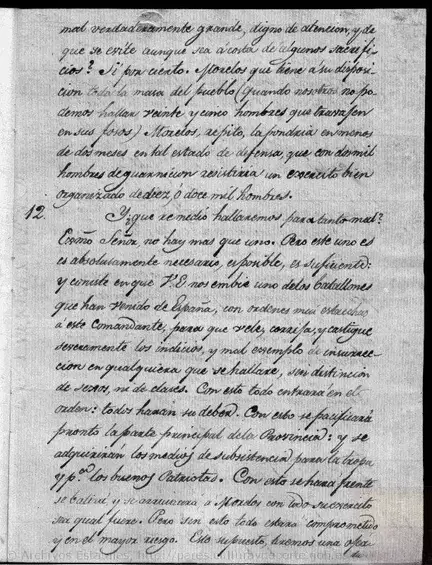 mal verdaderamente grande, digno de atencion, y de
que se evite aunque sea á costa de algunos sacrifi-
cios? Si por cierto. Morelos que tiene á su disposi-
cion toda la masa del pueblo (quando nosotros no po-
demos hallar veinte y cinco hombres que travajen
en sus fosos) Morelos, repito, la pondria en menos
de dos meses en tal estado de defensa, que con dos mil
hombres de guarnicion resistiria un exercito bien
organizado de diez ó doce mil hombres.
12. Y que remedio hallaremos para tanto mal?
Exmo Señor, no hay mas que uno. Pero este uno es
es absolutamente necesario, es posible, es suficiente:
y consiste en que V.E. nos embie uno de los batallones
que han venido de España, con ordenes mui estrechas
á este Comandante, para que vele, corrija, y castigue
severamente los indicios, y mal exemplo de insurrec-
cion en qualquiera que se hallare, sin distincion
de sexos, ni de clases. Con esto todo entrará en el
orden: todos haran su deber. Con esto se pacificará
pronto la parte principal de la Provincia: y se
adquirirán los medios de subsistencia para la tropa
y p.a los buenos Patriotas. Con esto se hará frente
y se arruinará á Morelos con todo su exercito
sea qual fuere. Pero sin esto todo estará comprometido
y en el mayor riesgo. Esto supuesto, haremos una